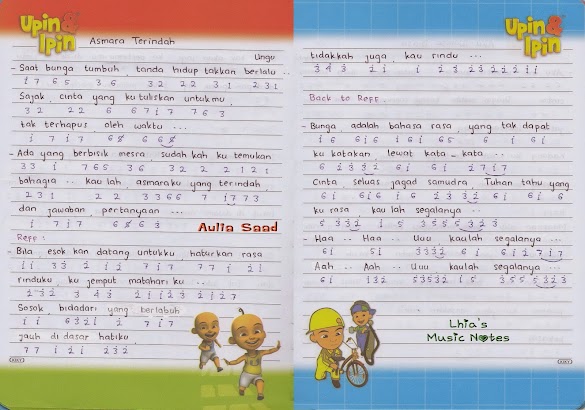 Upin & Ipin
Asmara Terindah
Ungu
- Saat bunga tumbuh, tanda hidup takkan berlalu ..
1 7 6 5 3 6 3 2 2 2 3 1 2 3 1
Sajak, cinta yang ku tuliskan untukmu,
3 2 2 2 6 6 7 1 7 7 6 3
tak terhapus, oleh waktu ...
1 7 1 7 6 6 6 6 5
- Ada yang berbisik mesra, sudah kah ku temukan
3 3 1 7 6 5 3 6 3 2 2 2 1 2 1
bahagia .. kau lah, asmaraku yang terindah,
2 3 1 2 2 3 3 6 6 7 1 7 7 3
dan jawaban, pertanyaan ...
1 7 1 7 6 6 6 3
Aulia Saad
Reff :
- Bila, esok kan datang untukku, haturkan rasa
1 1 3 3 2 1 2 7 1 7 7 7 1 2 1
rinduku, ku jemput matahari ku ..
2 3 2 3 4 3 2 1 1 2 3 2 1 2 7
Sosok, bidadari yang berlabuh
1 1 6 3 2 1 2 7 1 7
jauh di dasar hatiku
7 7 1 2 1 2 3 2
Upin & Ipin
tidakkah juga, kau rindu ...
3 4 3 2 1 1 2 3 2 3 2 2 2 1 1
Back to Reff.
- Bunga, adalah bahasa rasa, yang tak dapat
1 6 6 1 6 1 6 1 6 5 6 1 6 1
ku katakan, lewat kata - kata ..
6 2 3 3 2 6 1 6 1 2 7 1 7
Cinta, seluas jagad samudra, Tuhan tahu yang
6 1 6 1 6 1 6 2 3 3 2 6 1 6 1
ku rasa, kau lah segalanya ..
5 3 3 2 1 5 3 5 5 5 3 2 3
- Haa .. Haa .. Uuu kaulah segalanya ...
6 1 5 1 3 3 3 2 6 1 6 1 2 7 1 7
Aah .. Aah .. Uuu kaulah segalanya ...
6 1 1 3 2 5 3 5 3 2 1 5 3 5 5 5 3 2 3
Lhia's
Music Notes